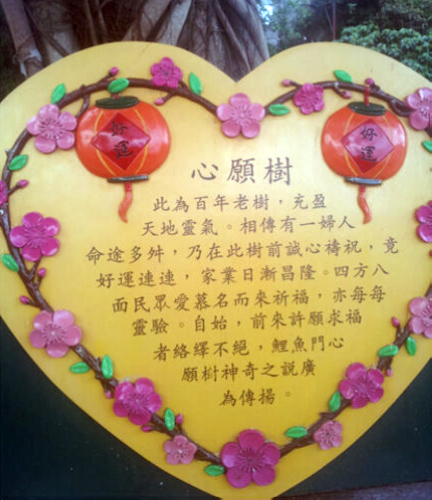 好運
好運
心願樹
此為百年老樹，充盈
天地靈氣。相傳有一婦人
命途多舛，乃在此樹前誠心禱祝，竟
好運連連，家業日漸昌隆。四方八
面民眾愛慕名而來祈福，亦每每
靈驗。自始，前來許願求福
者絡繹不絕，鯉魚門心
願樹神奇之說廣
為傳揚。